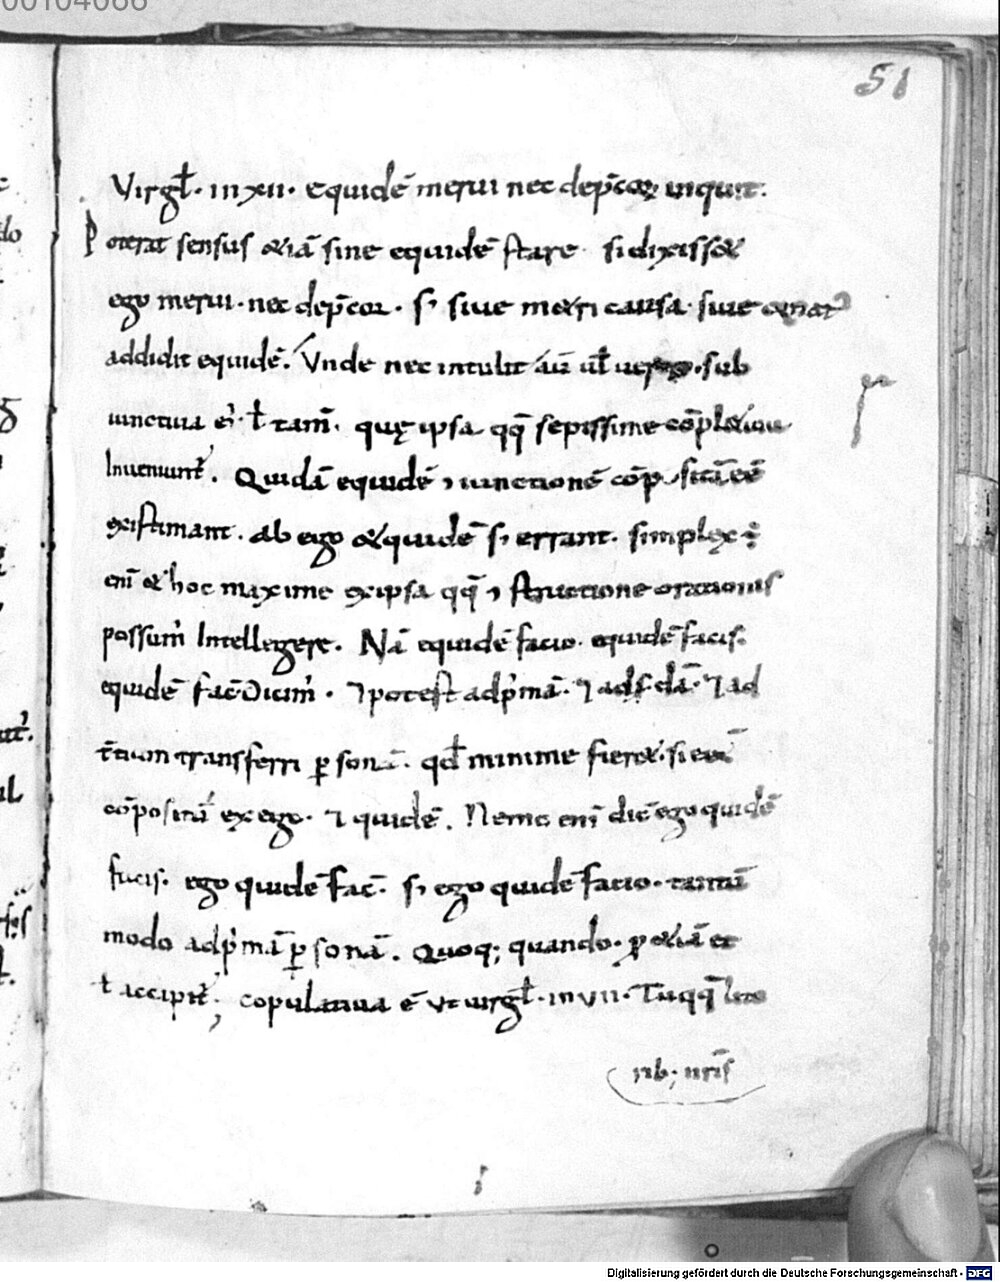 00104066
51
Virgł· in xii· equidē merui nec dep̄cor inquit:
Poterat sensus &iā sine equidē stare· si dixiss&
ego merui· nec dep̄cor· s; siue metri causa· siue ornat᷒
addidit equidē. Vnde nec intulit aū uł uero· sub
iunctiua ei· ł tam̄· quę ipsa qq̄ sepissime cōpl&iua
Inueniunt᷑. Quidā equidē iunctionē cōpositā eē
existimant. ab ego & quidē s; errant. simplex ÷
eni & hoc maxime ex ipsa qq̄ structione orationis
possum᷒ Intellegere. Nā equidē facio· equidē facis·
equidē fac̄ Dicim᷒· ⁊ potest ad p̄mā· ⁊ ad s̄c̄dā· ⁊ ad
t̄tiam transferri ꝑsonā· qđ minime fier&· si ess&
cōpositū ex ego· ⁊ quidē. Nemo eni dic̄ ego quidē
facis· ego quidē fac̄· s; ego quidē facio· tantū
modo ad p̄mā ꝑsonā. Quoq; quando· ꝓ &iā et
ł accipit᷑; copulatiua ē vt virgł· in vii· Tu qq̄ lito
rib; nr̄is
Digitalisierung gefördert durch die Deutsche Forschungsgemeinschaft - DFG